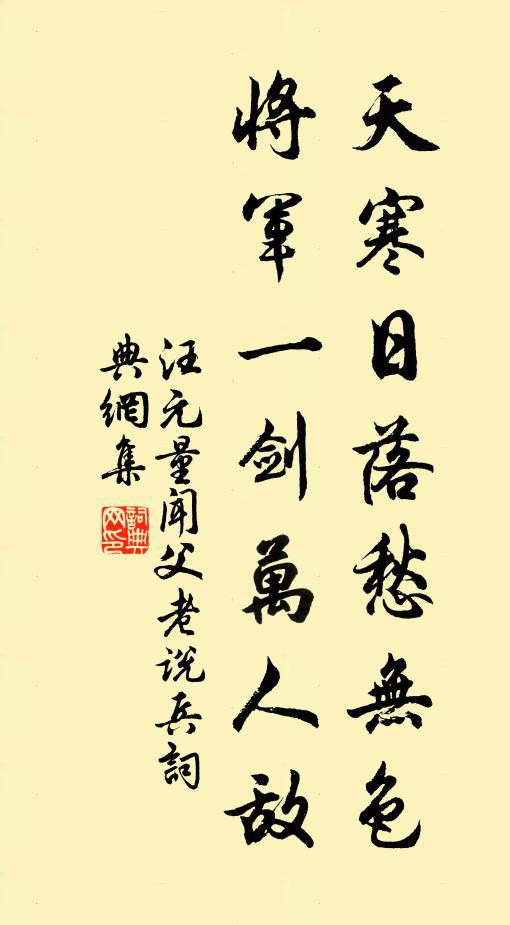 天寒日落愁無色
將軍一劍萬人敵
汪元量聞父老说兵詞
典網集
詞典网印